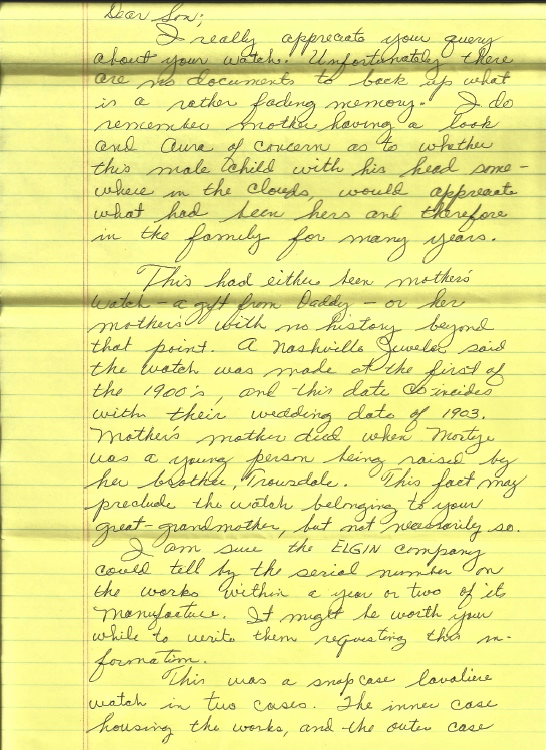 Dear Son;
I really appreciate your query
about your watch. Unfortunately there
are no documents to back up what
is a rather fading memory. I do
remember mother having a look
and aura of concern as to whether
this male child with his head some-
where in the clouds, would appreciate
what had been hers and therefore
in the family for many years.
This had either been mother's
watch - a gift from Daddy - or her
mother's with no history beyond
that point. A Nashville Jeweler said
the watch was made at the first of
the 1900's, and this date co-incides
with their wedding date of 1903.
Mother's mother died when
was a young person being raised by
her brother, Trousdale. This fact may
preclude the watch belonging to your
great-grandmother, but not necessarily so.
I am sure the ELGIN company
could tell by the serial number on
the works within a year or two of its
manufacture. It might be worth your
while to write them requesting this in-
formation.
This was a snapcase lavaliere
watch in two cases. The inner case
housing the works, and the outer case